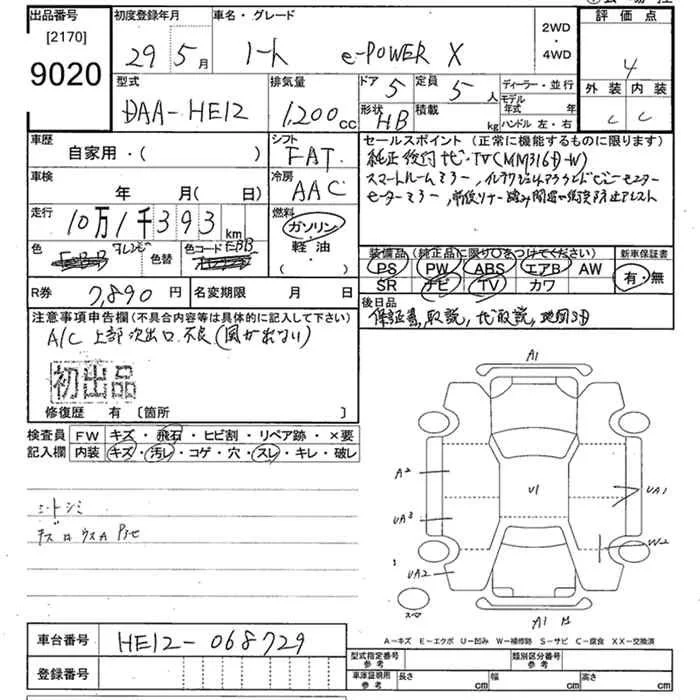 出品番号 初度登録年月 車名・グレード
[2170]
9020
29 5月 ノート e-POWER X
2WD
・
4WD
評価点
4
外装 内装
C C
型式 排気量 ドア 5 定員 5人 ディーラー・並行
DAA-HE12 1,200cc 形状 HB 積載 kg
モデル年式 年
ハンドル 左・右
車歴 シフト
自家用・( ) FAT
車検 冷房
年 月(日) AAC
走行 燃料
10万1千393km ガソリン・軽油・( )
色 オレンジ 色替 色コード EBB
R券 7,890円 名変期限 月 日
セールスポイント(正常に機能するものに限ります)
純正後付ナビ・TV(MM316D-W)
スマートルームミラー,
装備品(純正品に限り○をつけてください) 新車保証書
PS PW ABS エアB AW 有・無
SR ナビ TV カワ
後日品
保証書,取説,ナビ取説,地図SD
注意事項申告欄(不具合内容等は具体的に記入して下さい)
A/C 上部吹出口 不良(風が出ない)
初出品
修復歴 有 [箇所 ]
検査員 FW キズ・飛石・ヒビ割・リペア跡・×要
記入欄 内装 キズ・汚レ・コゲ・穴・スレ・キレ・破レ
シートシミ
A1
A2
U1
UA1
UA3
W2
UA2
A1
スペア
A-キズ E-エクボ U-凹み W-補修跡 S-サビ C-腐食 XX-交換済
車台番号 HE12-068729
登録番号
型式指定番号 参考 類別区分番号 参考
車庫証明用 参考 長さ cm 幅 cm 高さ cm